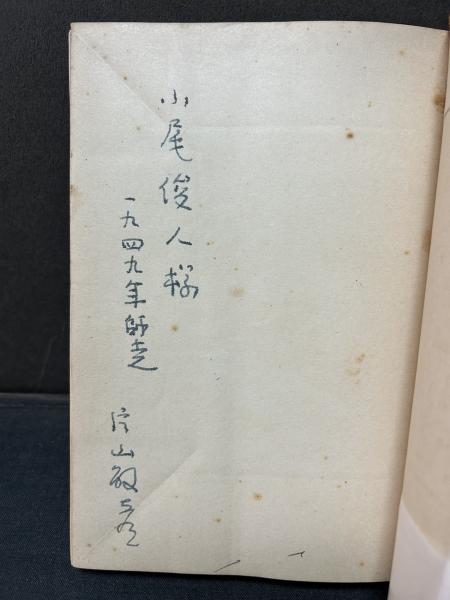 小尾俊人様
一九四九年師走
片山敏彦